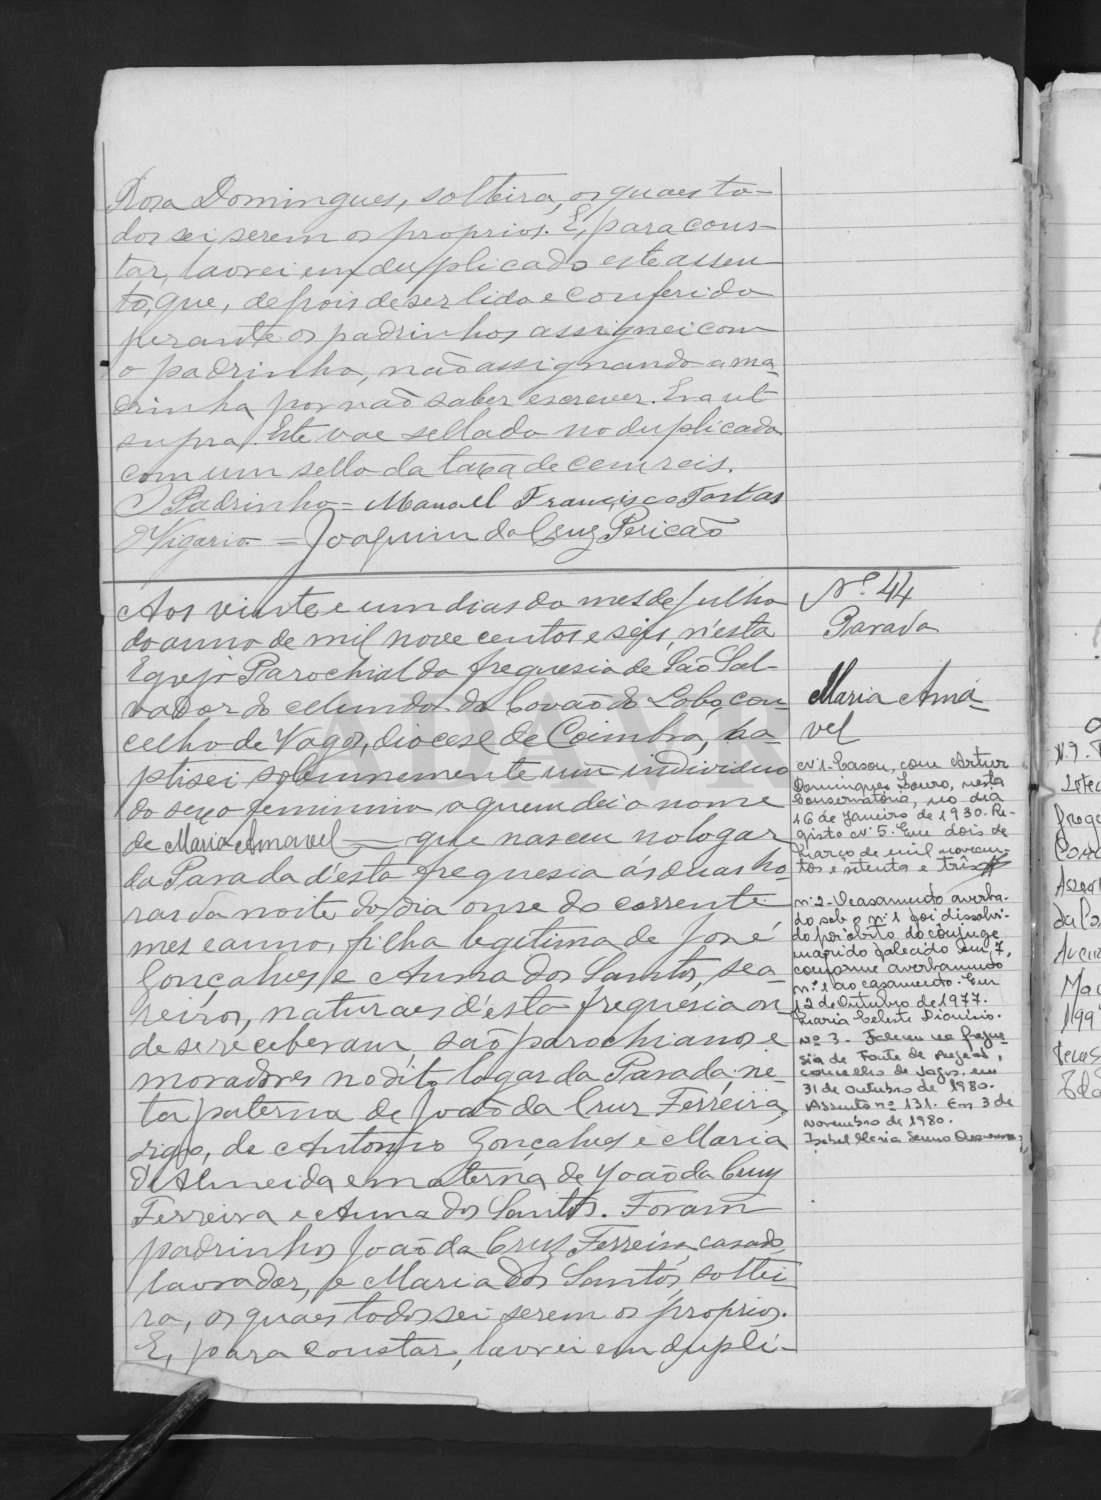 Rosa Domingues, solteira, os quaes to-
dos sei serem os proprios. E, para cons-
tar, lavrei em duplicado este assen-
to, que, depois de ser lido e conferido
perante os padrinhos assignei com
o padrinho, não assignando a ma-
drinha por não saber escrever. Era ut
supra. Este vae sellado no duplicado
com um sello da taxa de cem reis.
O Padrinho = Manoel Francisco
O Vigario = Joaquim da Cruz Pericão
Aos vinte e um dias do mes de Julho
do anno de mil nove centos e seis, n'esta
Egreja Parochial da freguesia de São Sal-
vador do Mundo do Covão do Lobo, con-
celho de Vagos, diocese de Coimbra, ba-
ptisei solemnemente um individuo
do sexo feminino a quem dei o nome
de Maria Amavel = que nasceu no logar
da Parada d'esta freguesia ás duas ho-
ras da noite do dia onse do corrente
mes e anno, filha legitima de José
Gonçalves e Anna dos Santos, sea-
reiros, naturaes d'esta freguesia on-
de se receberam, são parochianos e
moradores no dito logar da Parada; ne-
ta paterna de João da Cruz Ferreira,
digo, de Antonio Gonçalves e Maria
d'Almeida e materna de João da Cruz
Ferreira e Anna dos Santos. Foram
padrinhos João da Cruz Ferreira casado,
lavrador, e Maria dos Santos, soltei-
ra, os quaes todos sei serem os proprios.
E, para constar, lavrei em dupli-
Nº 44
Parada
Maria Amá-
vel
Nº 1 - Casou, com Artur
Domingues Louro, nesta
Conservatória, no dia
16 de Janeiro de 1930. Re-
gisto nº 5. Em dois de
Março de mil novecen-
tos e setenta e três
nº 2 - O casamento averba-
do sob o nº 1 foi dissolvi-
do por óbito do cônjuge
marido falecido em 7,
conforme averbamento
nº 1 ao casamento. Em
12 de Outubro de 1977.
Maria Celeste Dionísio.
Nº 3 - Faleceu na fregue-
sia de Fonte de Angeão,
concelho de Vagos, em
31 de Outubro de 1980.
Assento nº 131. Em 3 de
Novembro de 1980.
Isabel Maria
ADAVR